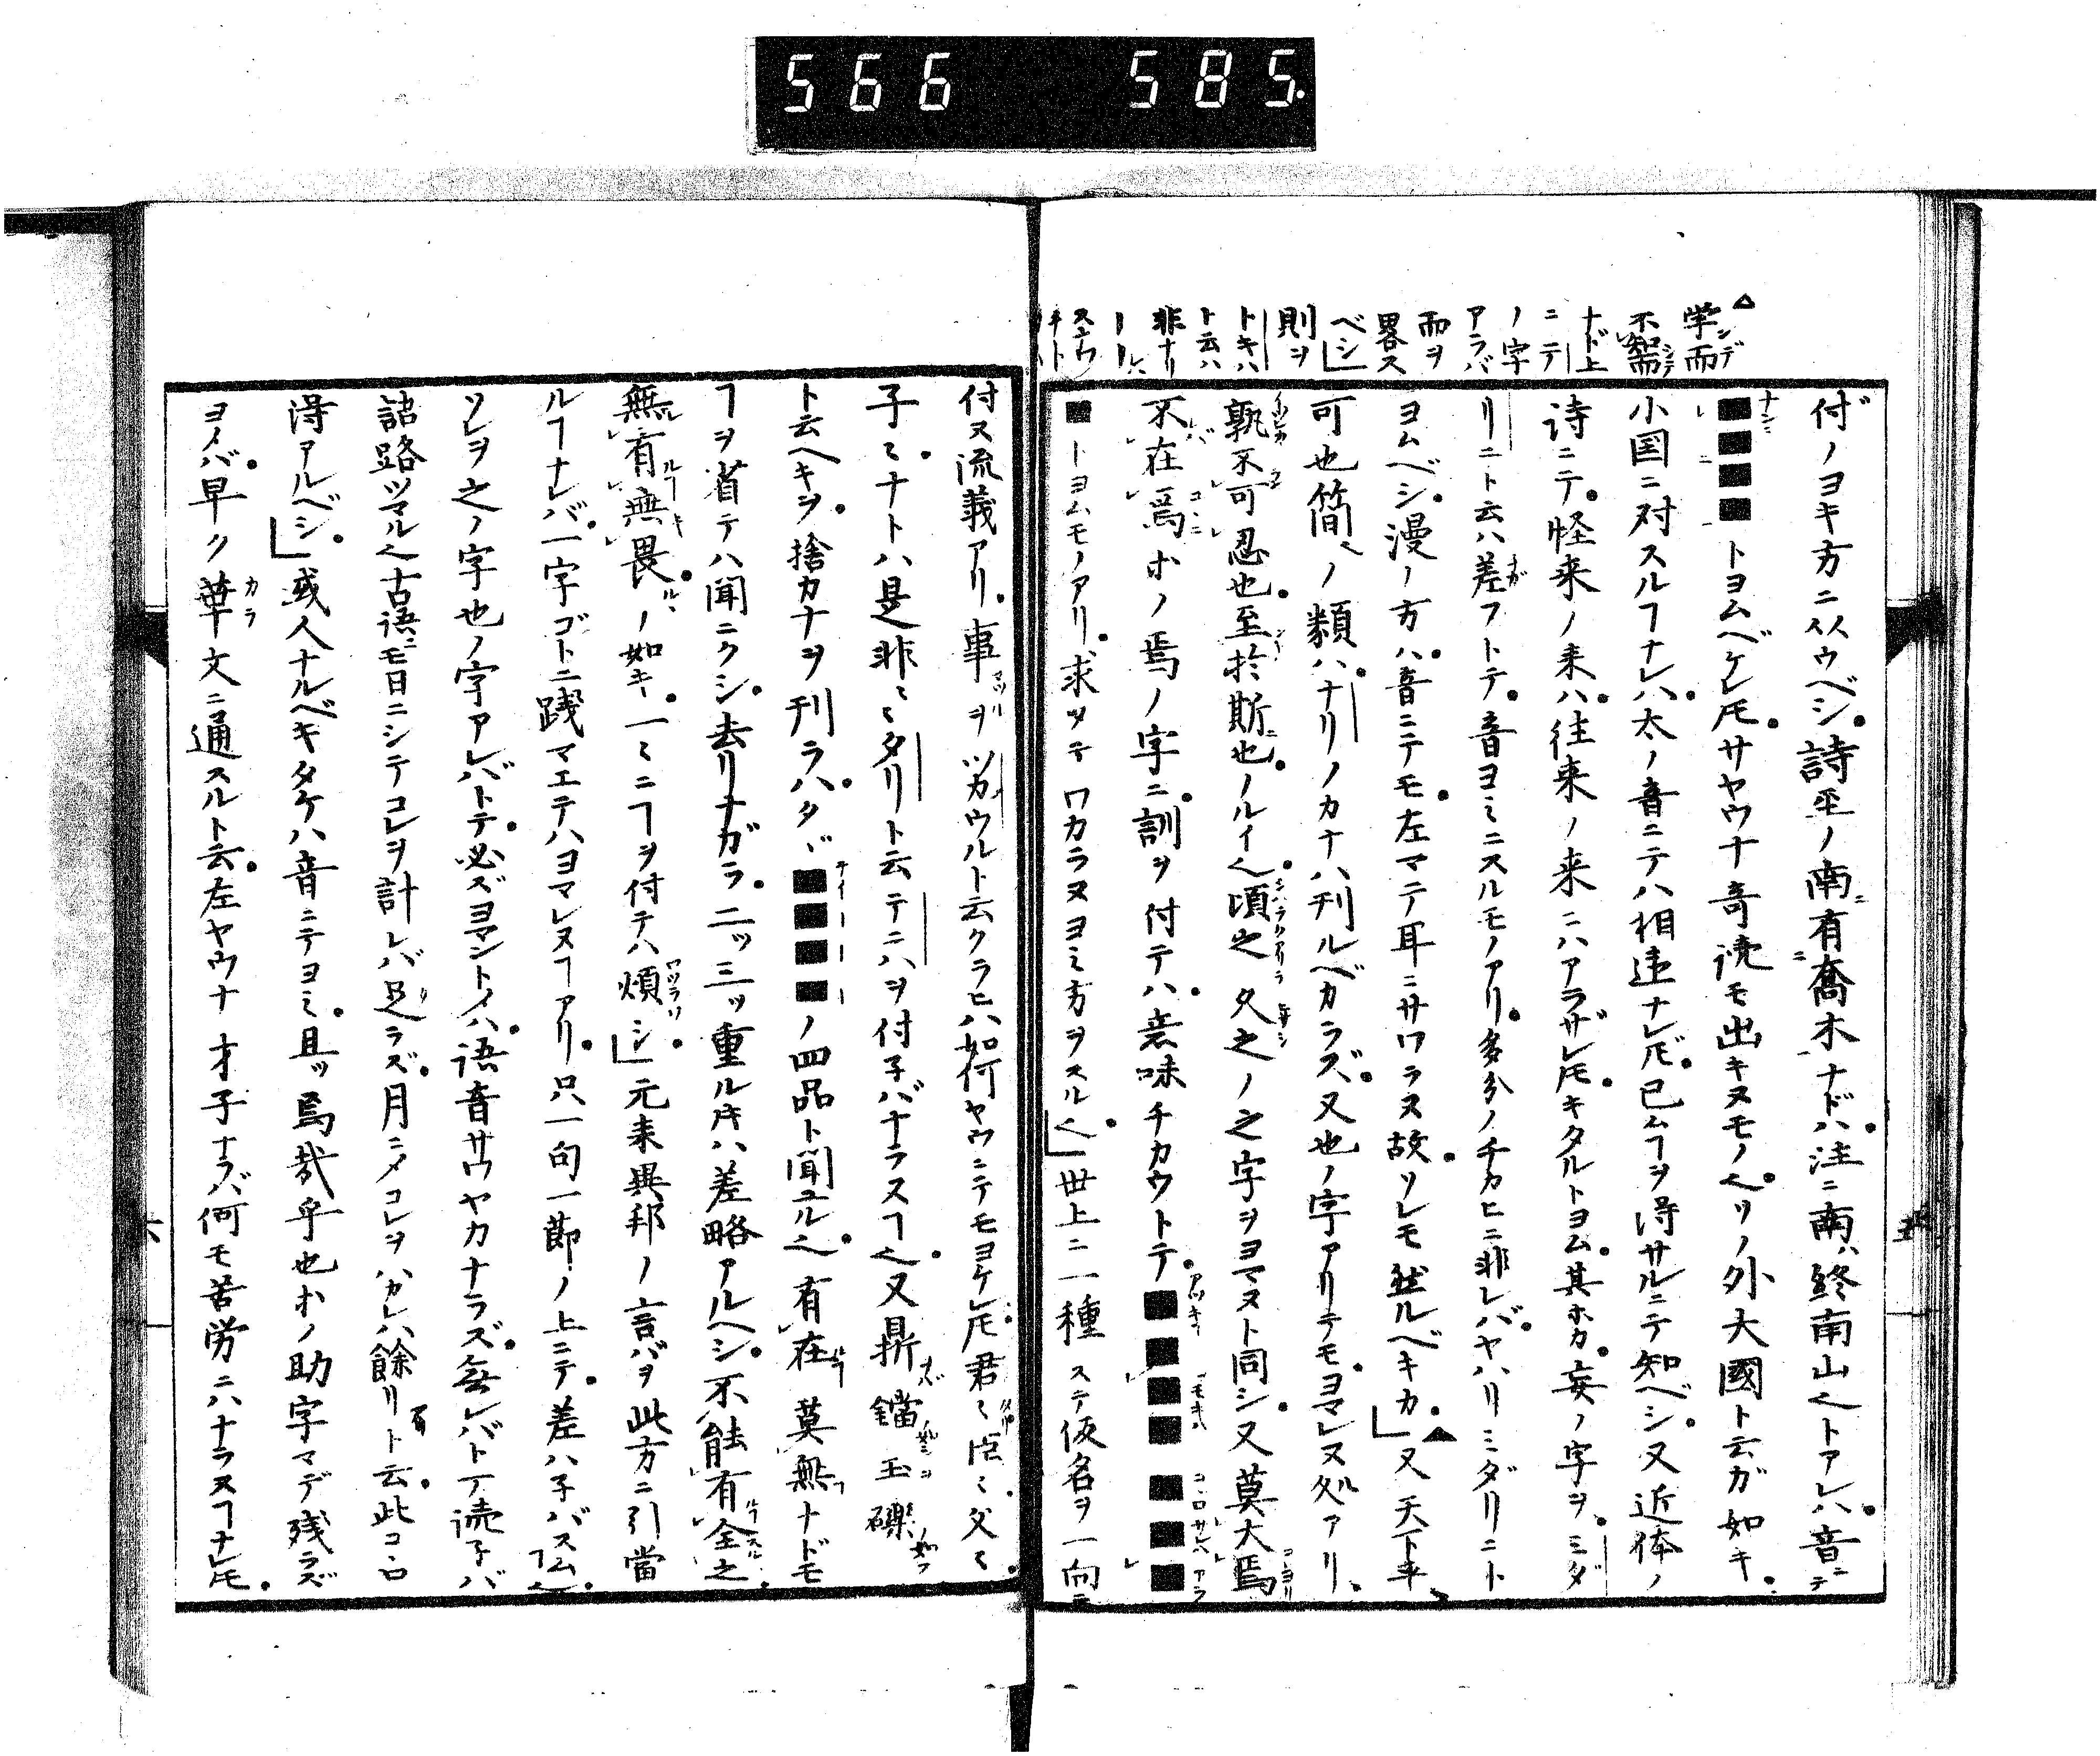 566 585.
△
学而
不知而
ナド上
ニテ
ノ字
アラバ
而ヲ
畧ス
ベシ
則ヲ
トキハ
ト云ハ
非ナリ
付ノヨキ方ニ从ウベシ。詩巫ノ南有喬木ナドハ。注ニ南ハ終南山トアレハ。音ニテ
■■■■トヨムベケレ𪜈。サヤウナ奇読モ出キヌモノ也。ソノ外大國ト云ガ如キ。
小国ニ対スルヿナレハ。太ノ音ニテハ相違ナレ𪜈。已ムヿヲ得サルニテ知ベシ。又近体ノ
詩ニテ。怪来ノ来ハ。往来ノ来ニハアラザレ𪜈。キタルトヨム。其ホカ。妄ノ字ヲ。ミダ
リニト云ハ差フトテ。音ヨミニスルモノアリ。多分ノチカヒニ非レバ。ヤハリミダリニト
ヨムベシ。漫ノ方ハ。音ニテモ。左マテ耳ニサワラヌ故。ソレモ然ルベキカ。」▲又天下事
可也簡也ノ類ハ。ナリノカナハ刊ルベカラズ。又也ノ字アリテモ。ヨマレヌ処アリ。
孰不可忍也。至於斯也。ノルイ也。頃之久之ノ之字ヲヨマヌト同シ。又莫大焉
不在焉ホノ焉ノ字ニ。訓ヲ付テハ。意味チカウトテ。■■■■■■■
■トヨムモノアリ。求ツテワカラヌヨミ方ヲスル也。」世上ニ一種ステ仮名ヲ一向ニ
付ヌ流義アリ。事ヲツカウルト云クラヒハ如何ヤウニテモヨケレ𪜈。君〻臣〻父〻
子〻。ナトハ是非〻タリト云テニハヲ付子バナラスヿ也。又鼎鐺玉礫
ト云ヘキヲ。捨カナヲ刊ラハ。タヾ■■■■ノ四品ト聞ユル也。有在莫無ナドモ
ヿヲ省テハ聞ニクシ。去リナガラ。二ッ三ッ重ルキハ差略アルヘシ。不能有全之。
無有無畏。ノ如キ。一〻ニヿヲ付テハ煩シ。」元来異邦ノ言バヲ此方ニ引當
ルヿナレバ。一字ゴトニ踐マエテハヨマレヌヿアリ。只一句一節ノ上ニテ。差ハ子バスム也。
ソレヲ之ノ字也ノ字アレバトテ。必ズヨマントイハ。語音サワヤカナラズ。無レバトテ読子バ
詰路ツマル也古語ニモ日ニシテコレヲ計レバ足ラズ。月ニメコレヲハカレハ餘リト云。此コヽロ
得アルベシ。」或人ナルベキタケハ音ニテヨミ。且ッ焉哉乎也ホノ助字マデ残ラズ
ヨメバ。早ク華文ニ通スルト云。左ヤウナオ子ナラバ何モ苦労ニハナラスヿナレ𪜈。
六